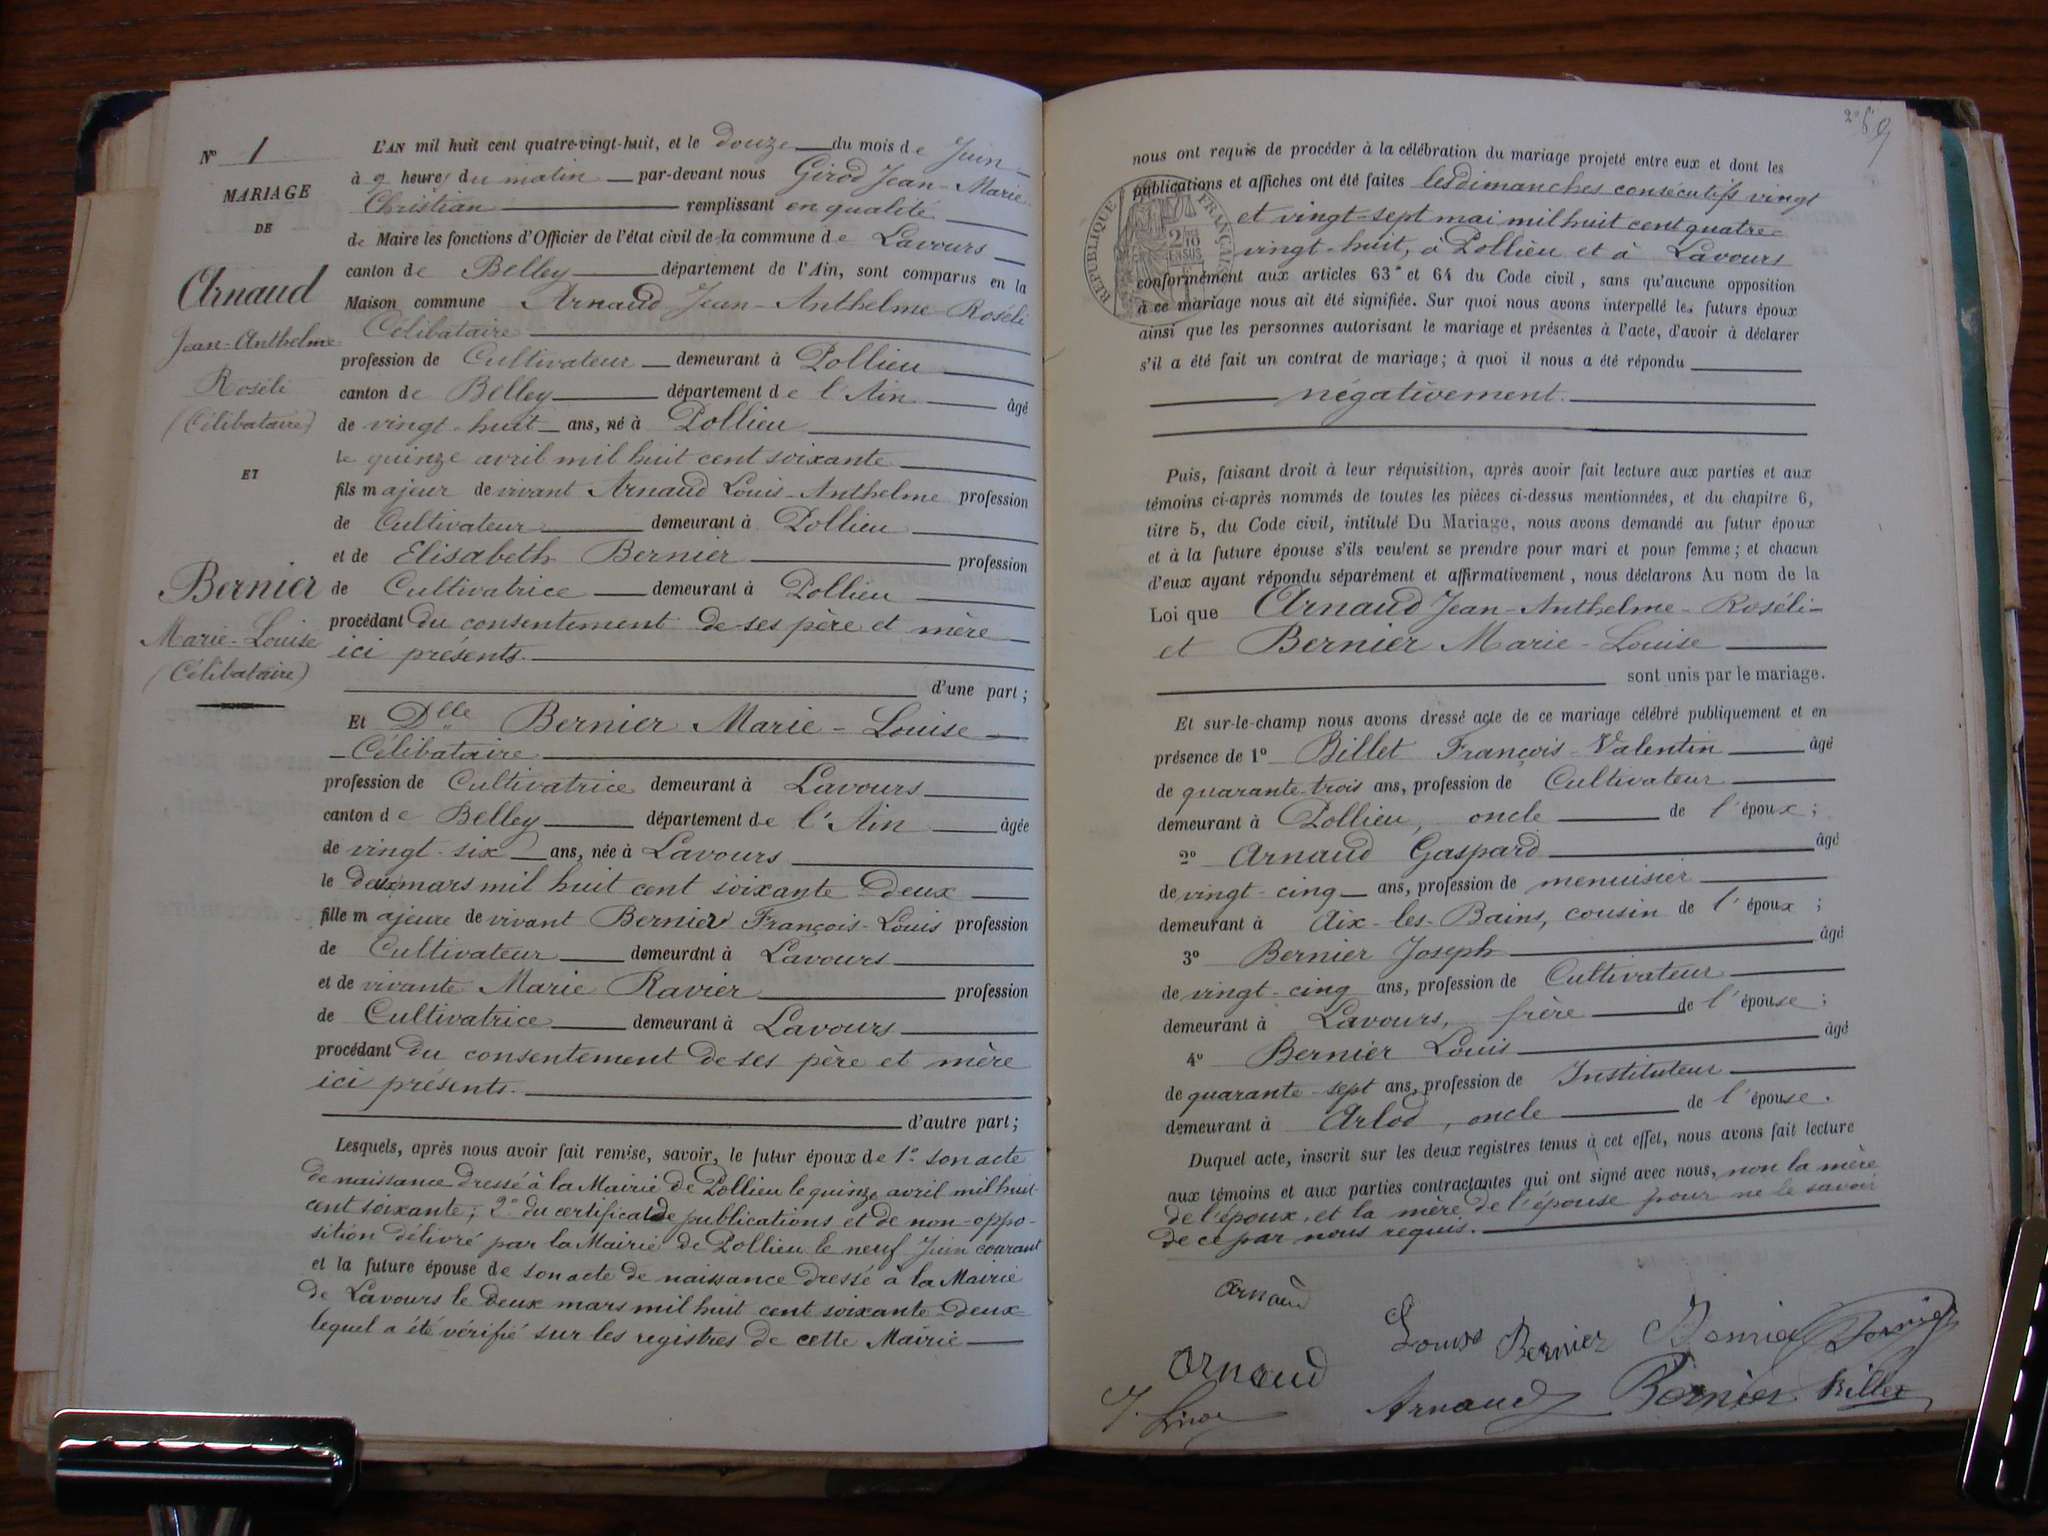 N° 1
MARIAGE
DE
Arnaud
Jean-Anthelme
Roséli
(Célibataire)
ET
Bernier
Marie-Louise
(Célibataire)
L'AN mil huit cent quatre-vingt-huit, et le douze du mois de Juin
à 9 heures du matin par-devant nous Girod Jean-Marie
Christian remplissant en qualité
de Maire les fonctions d'Officier de l'état civil de la commune de Lavours
canton de Belley département de l'Ain, sont comparus en la
Maison commune Arnaud Jean-Anthelme-Roséli
Célibataire
profession de Cultivateur demeurant à Pollieu
canton de Belley département de l'Ain âgé
de vingt-huit ans, né à Pollieu
le quinze avril mil huit cent soixante
fils majeur de vivant Arnaud Louis-Anthelme profession
de Cultivateur demeurant à Pollieu
et de Elisabeth Bernier profession
de Cultivatrice demeurant à Pollieu
procédant du consentement de ses père et mère
ici présents.
d'une part;
Et Dlle Bernier Marie-Louise
Célibataire
profession de Cultivatrice demeurant à Lavours
canton de Belley département de l'Ain âgée
de vingt-six ans, née à Lavours
le deux mars mil huit cent soixante-deux
fille majeure de vivant Bernier François-Louis profession
de Cultivateur demeurant à Lavours
et de vivante Marie Ravier profession
de Cultivatrice demeurant à Lavours
procédant du consentement de ses père et mère
ici présents.
d'autre part;
Lesquels, après nous avoir fait remise, savoir, le futur époux de 1° son acte
de naissance dressé à la Mairie de Pollieu le quinze avril mil huit
cent soixante; 2° du certificat de publications et de non-oppo-
sition délivré par la Mairie de Pollieu le neuf Juin courant
et la future épouse de son acte de naissance dressé à la Mairie
de Lavours le deux mars mil huit cent soixante-deux
lequel a été vérifié sur les registres de cette Mairie
nous ont requis de procéder à la célébration du mariage projeté entre eux et dont les
publications et affiches ont été faites les dimanches consécutifs vingt
et vingt-sept mai mil huit cent quatre-
vingt-huit, à Pollieu et à Lavours
conformément aux articles 63 et 64 du Code civil, sans qu'aucune opposition
à ce mariage nous ait été signifiée. Sur quoi nous avons interpellé les futurs époux
ainsi que les personnes autorisant le mariage et présentes à l'acte, d'avoir à déclarer
s'il a été fait un contrat de mariage; à quoi il nous a été répondu
négativement.
RÉPUBLIQUE FRANÇAISE
2/10 EN SUS
Puis, faisant droit à leur réquisition, après avoir fait lecture aux parties et aux
témoins ci-après nommés de toutes les pièces ci-dessus mentionnées, et du chapitre 6,
titre 5, du Code civil, intitulé Du Mariage, nous avons demandé au futur époux
et à la future épouse s'ils veulent se prendre pour mari et pour femme; et chacun
d'eux ayant répondu séparément et affirmativement, nous déclarons Au nom de la
Loi que Arnaud Jean-Anthelme-Roséli-
et Bernier Marie-Louise
sont unis par le mariage.
Et sur-le-champ nous avons dressé acte de ce mariage célébré publiquement et en
présence de 1° Billet François-Valentin âgé
de quarante-trois ans, profession de Cultivateur
demeurant à Pollieu, oncle de l'époux;
2° Arnaud Gaspard âgé
de vingt-cinq ans, profession de menuisier
demeurant à Aix-les-Bains, cousin de l'époux;
3° Bernier Joseph âgé
de vingt-cinq ans, profession de Cultivateur
demeurant à Lavours, frère de l'épouse;
4° Bernier Louis âgé
de quarante-sept ans, profession de Instituteur
demeurant à Arlod, oncle de l'épouse.
Duquel acte, inscrit sur les deux registres tenus à cet effet, nous avons fait lecture
aux témoins et aux parties contractantes qui ont signé avec nous, non la mère
de l'époux, et la mère de l'épouse pour ne le savoir
de ce par nous requis.
Arnaud
Louise Bernier Bernier Bernier
Arnaud
Arnaud Bernier Billet